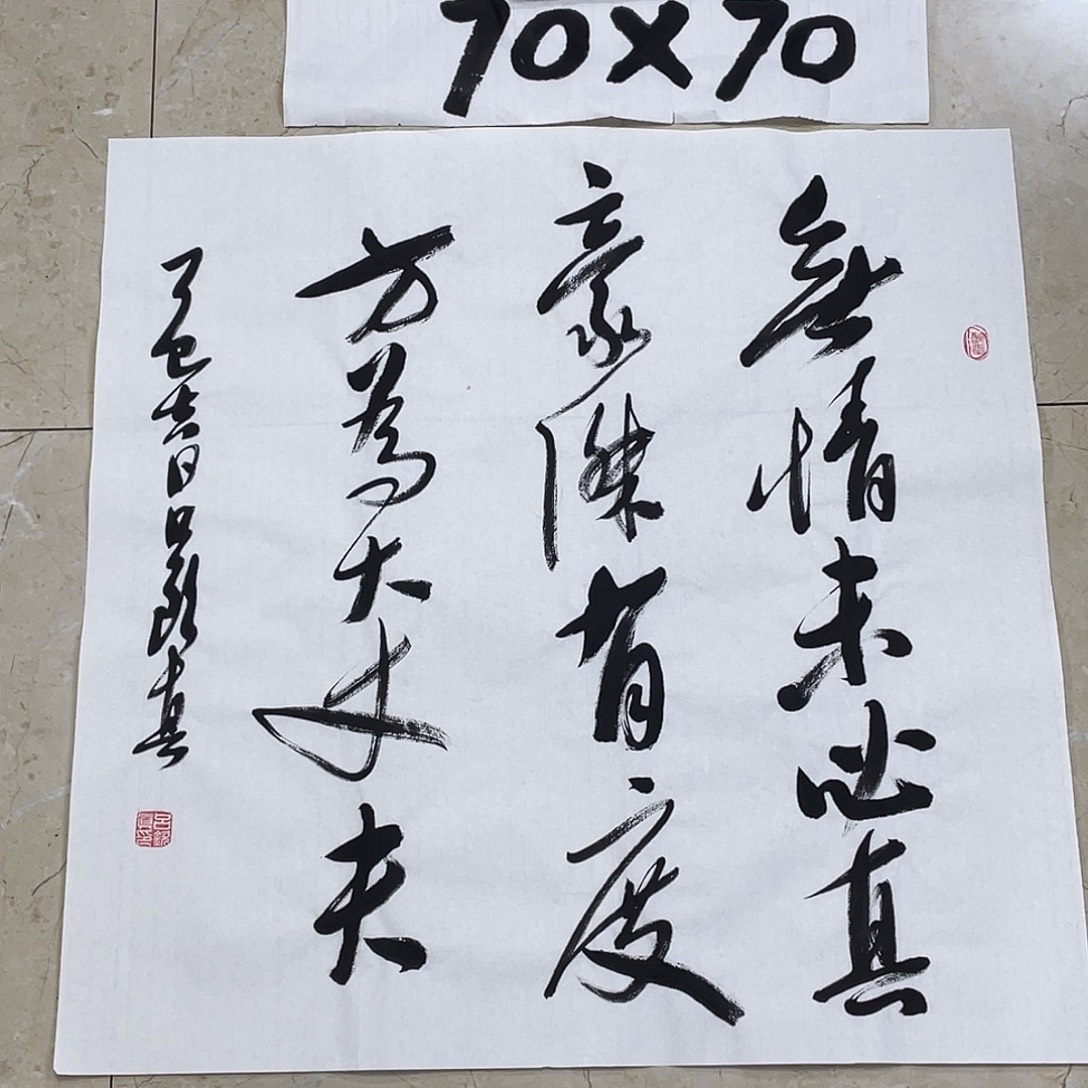 70×70
無情未必真
豪傑有度
方為大丈夫
乙巳吉日吕真